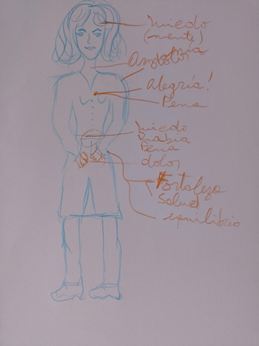 Miedo
(mente)
Angustia
Alegría!
Pena
Miedo
Rabia
Pena
dolor
Fortaleza
Salud
equilibrio